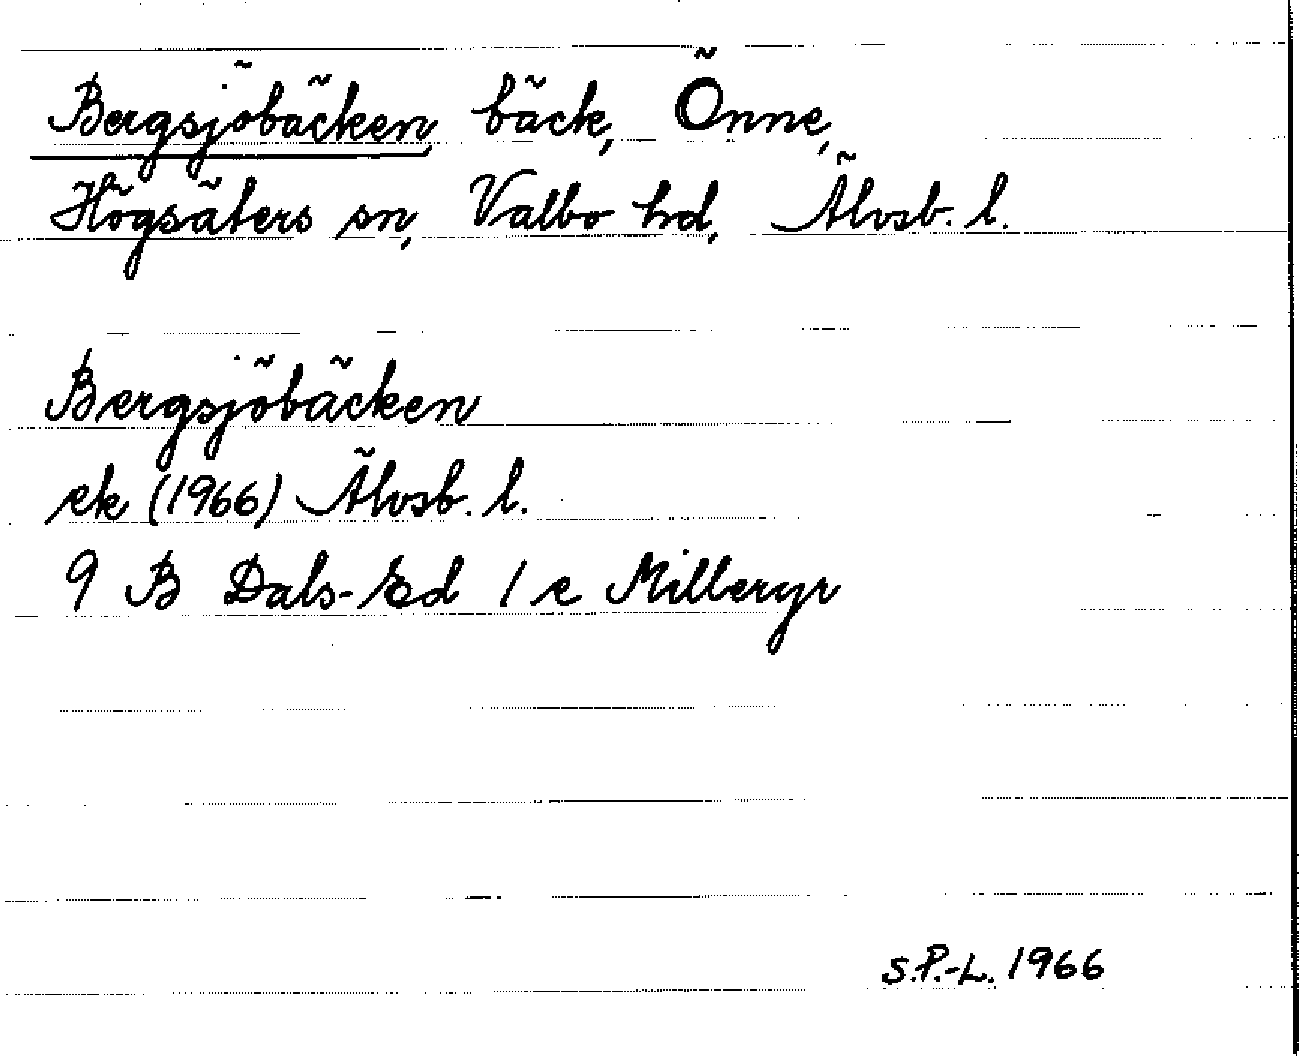 Bergsjöbäcken, bäck, Önne,
Högsäters sn, Valbo hd, Älvsb. l.
Bergsjöbäcken
ek (1966) Älvsb. l.
9 B Dals-Ed 1 e Milleryr
S.P.-L. 1966